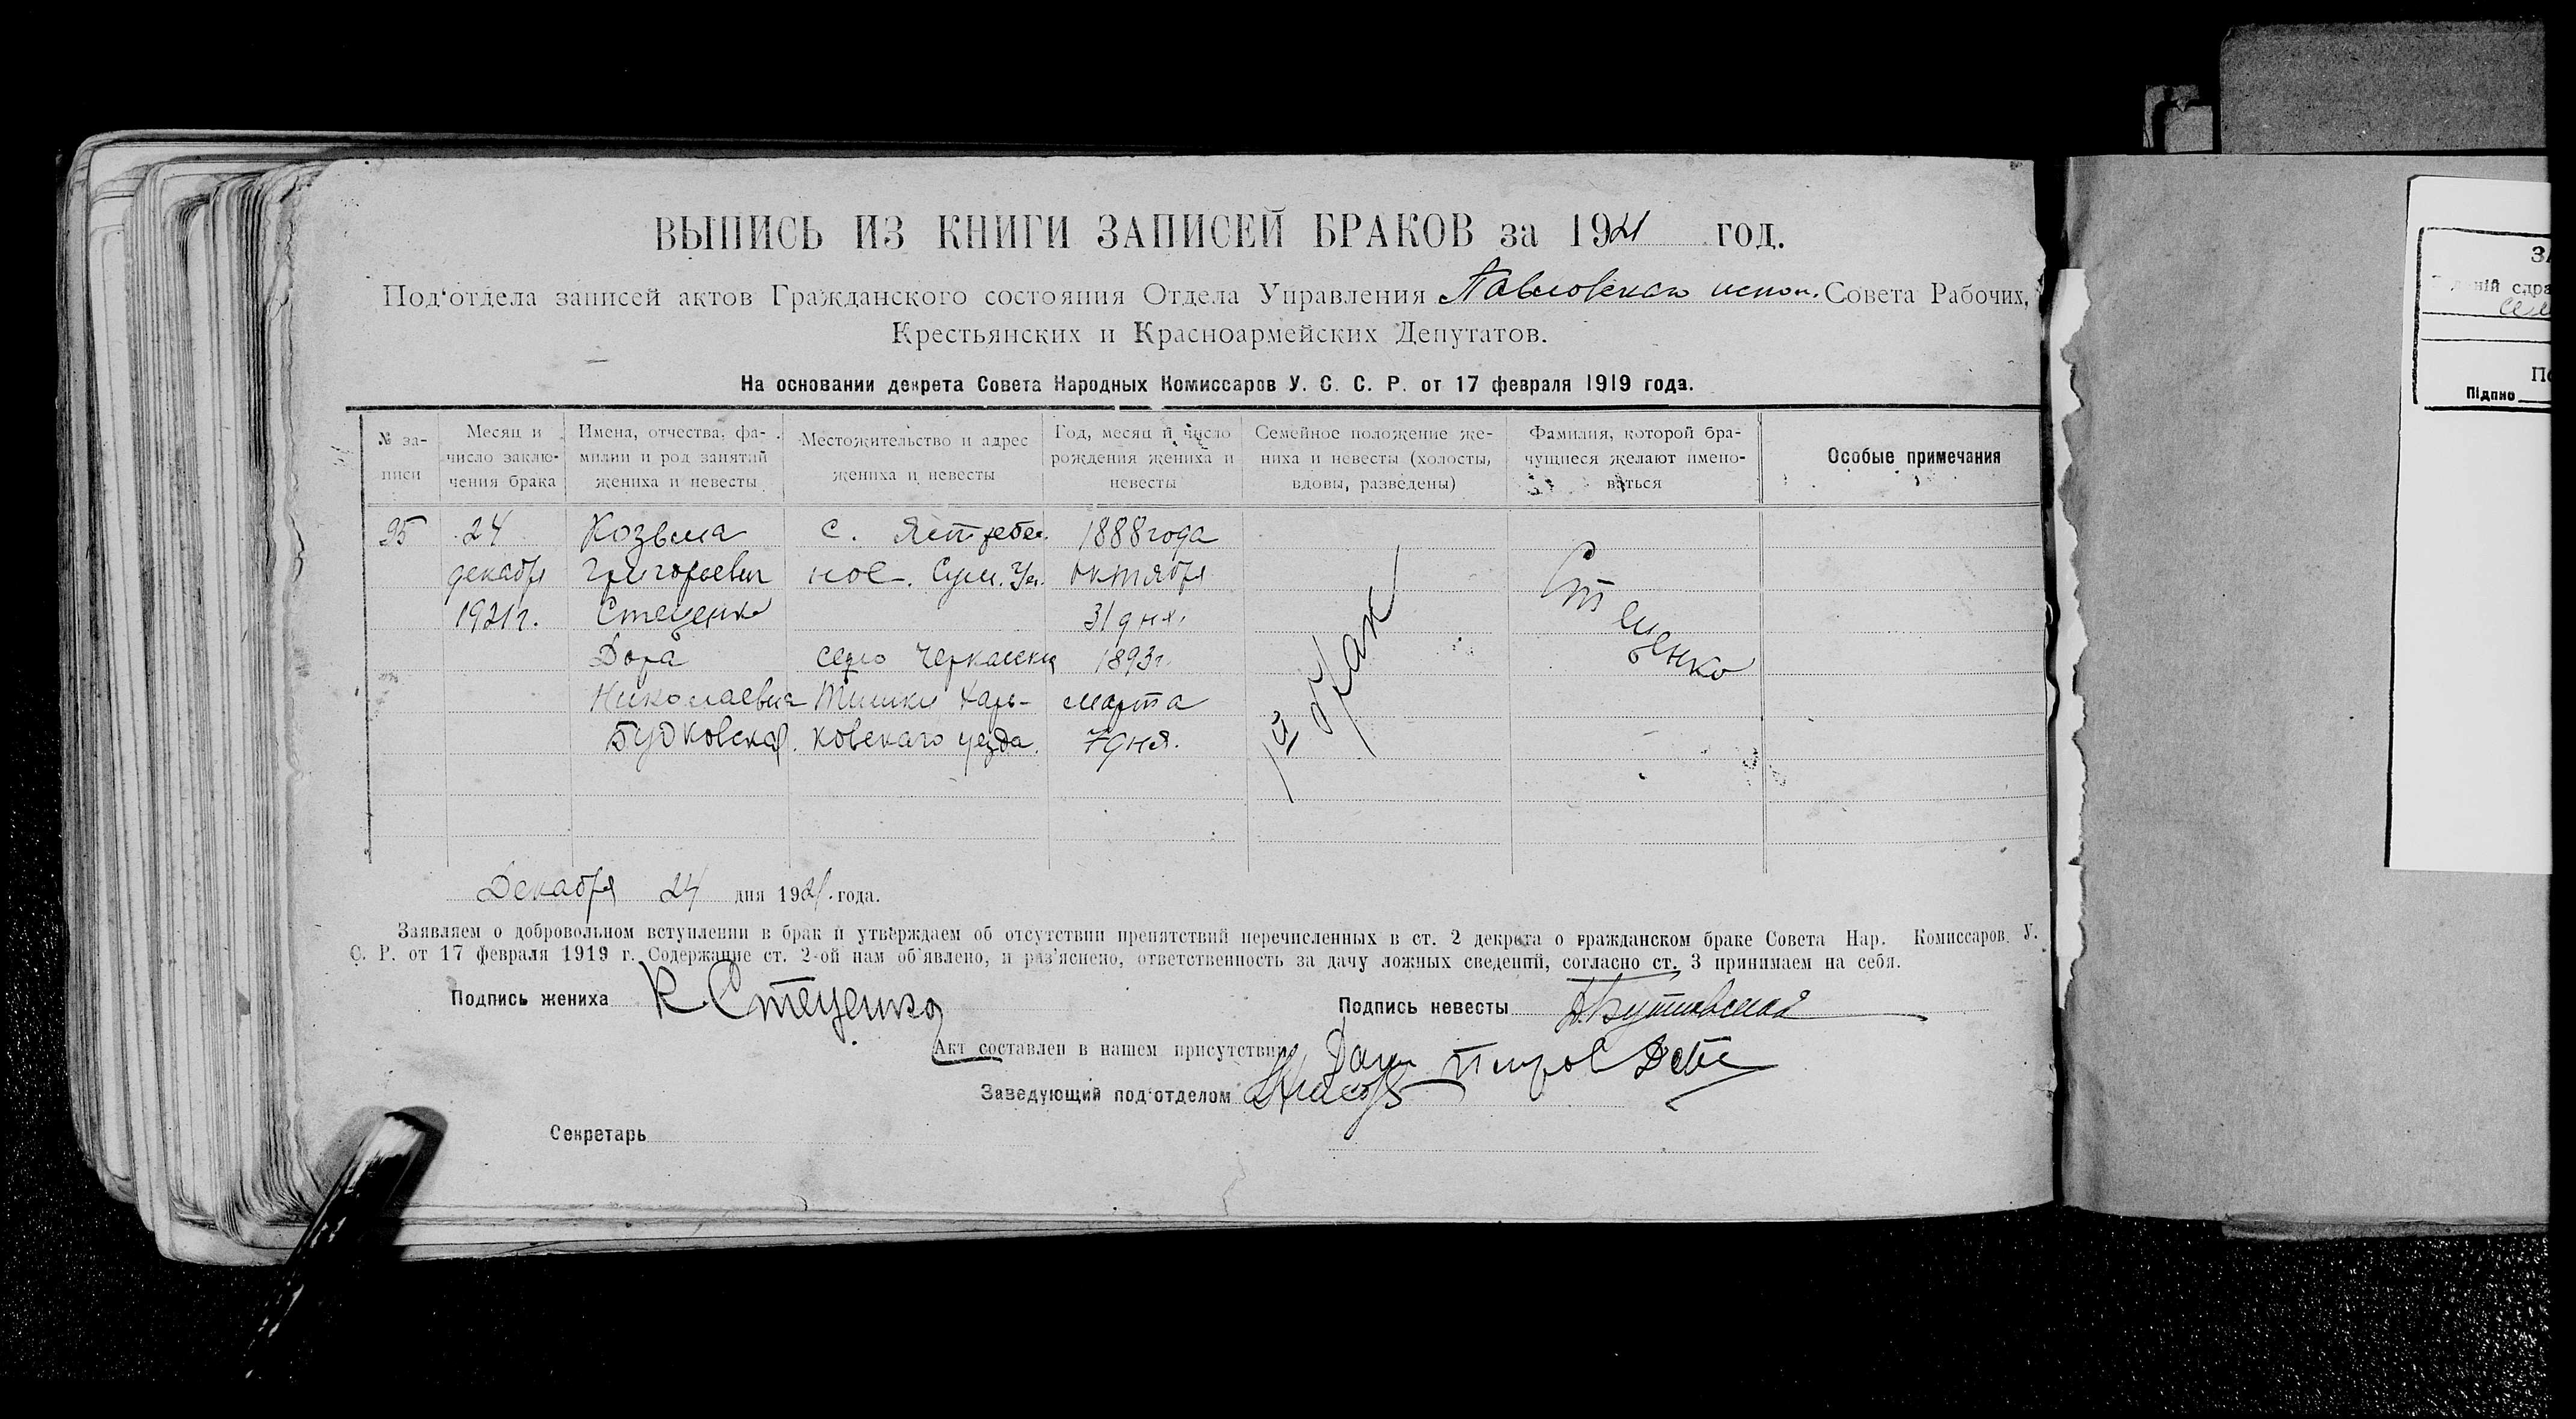 ВЫПИСЬ ИЗ КНИГИ ЗАПИСЕЙ БРАКОВ за 1921 год.
Под'отдела записей актов Гражданского состояния Отдела Управления Павловскаго испол. Совета Рабочих,
Крестьянских и Красноармейских Депутатов.
На основании декрета Совета Народных Комиссаров У. С. С. Р. от 17 февраля 1919 года.
№ за-
писи
Месяц и
число заклю-
чения брака
Имена, отчества, фа-
милии и род занятий
жениха и невесты
Местожительство и адрес
жениха и невесты
Год, месяц и число
рождения жениха и
невесты
Семейное положение же-
ниха и невесты (холосты,
вдовы, разведены)
Фамилия, которой бра-
чущиеся желают имено-
ваться
Особые примечания
95
24
декабря
1921 г.
Козьма
Григорьевич
Стеценко
Дора
Николаевна
Будковская.
с. Ястребен-
ное. Сум. Уез.
село Черкасски
Тишки Харь-
ковскаго уезда.
1888 года
октября
31 дня.
1893 г.
марта
7 дня.
1й брак
Стеценко
Декабря 24 дня 1921 года.
Заявляем о добровольном вступлении в брак и утверждаем об отсутствии препятствий перечисленных в ст. 2 декрета о гражданском браке Совета Нар. Комиссаров У.
С. Р. от 17 февраля 1919 г. Содержание ст. 2-ой нам об'явлено, и раз'яснено, ответственность за дачу ложных сведений, согласно ст. 3 принимаем на себя.
Подпись жениха К Стеценко
Подпись невесты Д. Бутковская
Акт составлен в нашем присутствии
Заведующий под'отделом
Секретарь
Підпис